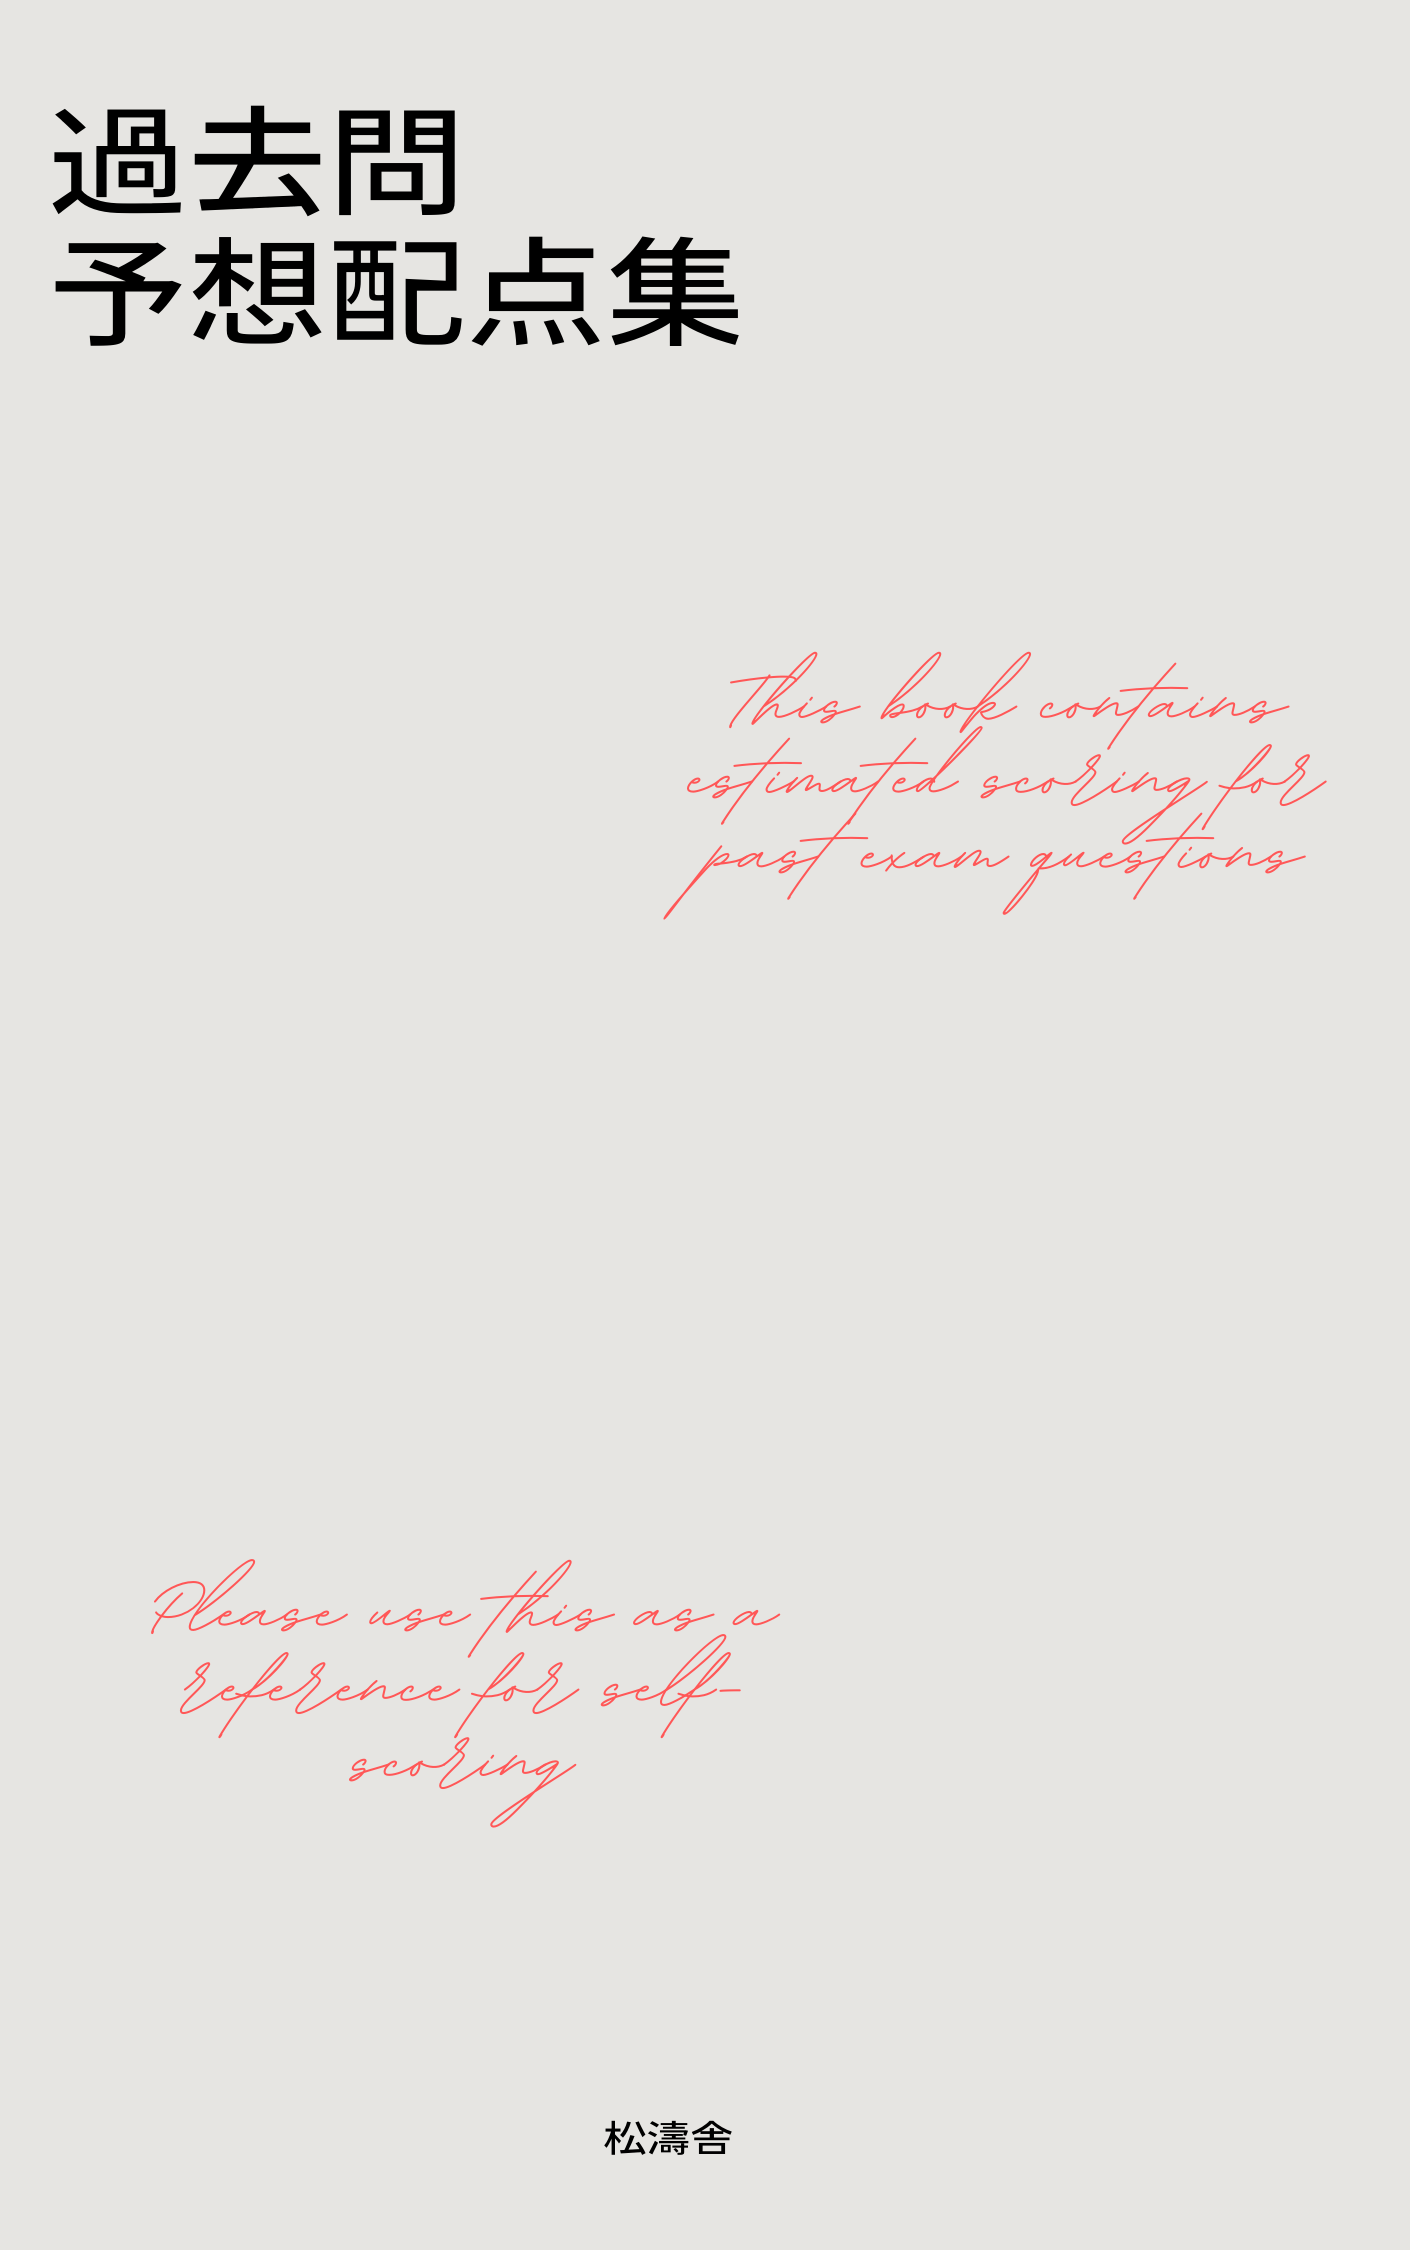 過去問
予想配点集
This book contains
estimated scoring for
past exam questions
Please use this as a
reference for self-
scoring
松濤舎